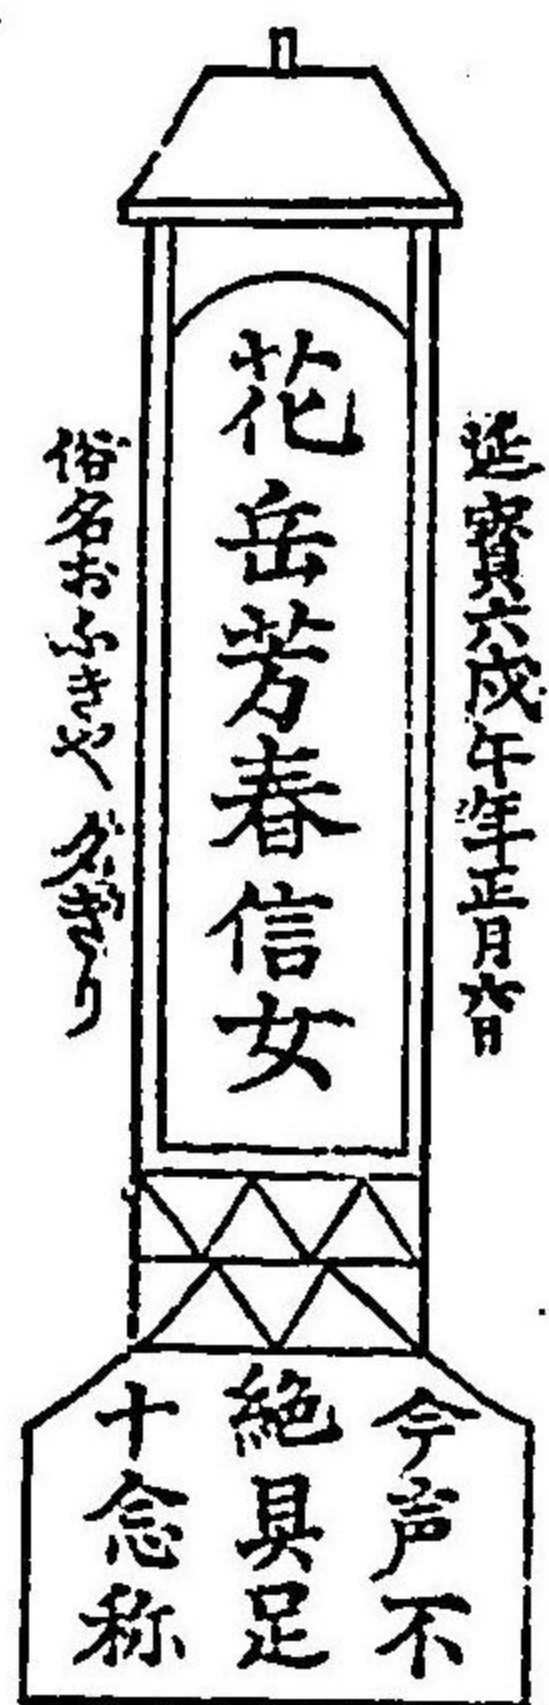 延寳六戊午年正月六日
花岳芳春信女
俗名あふきや 夕ぎり
今声不
絶具足
十念称